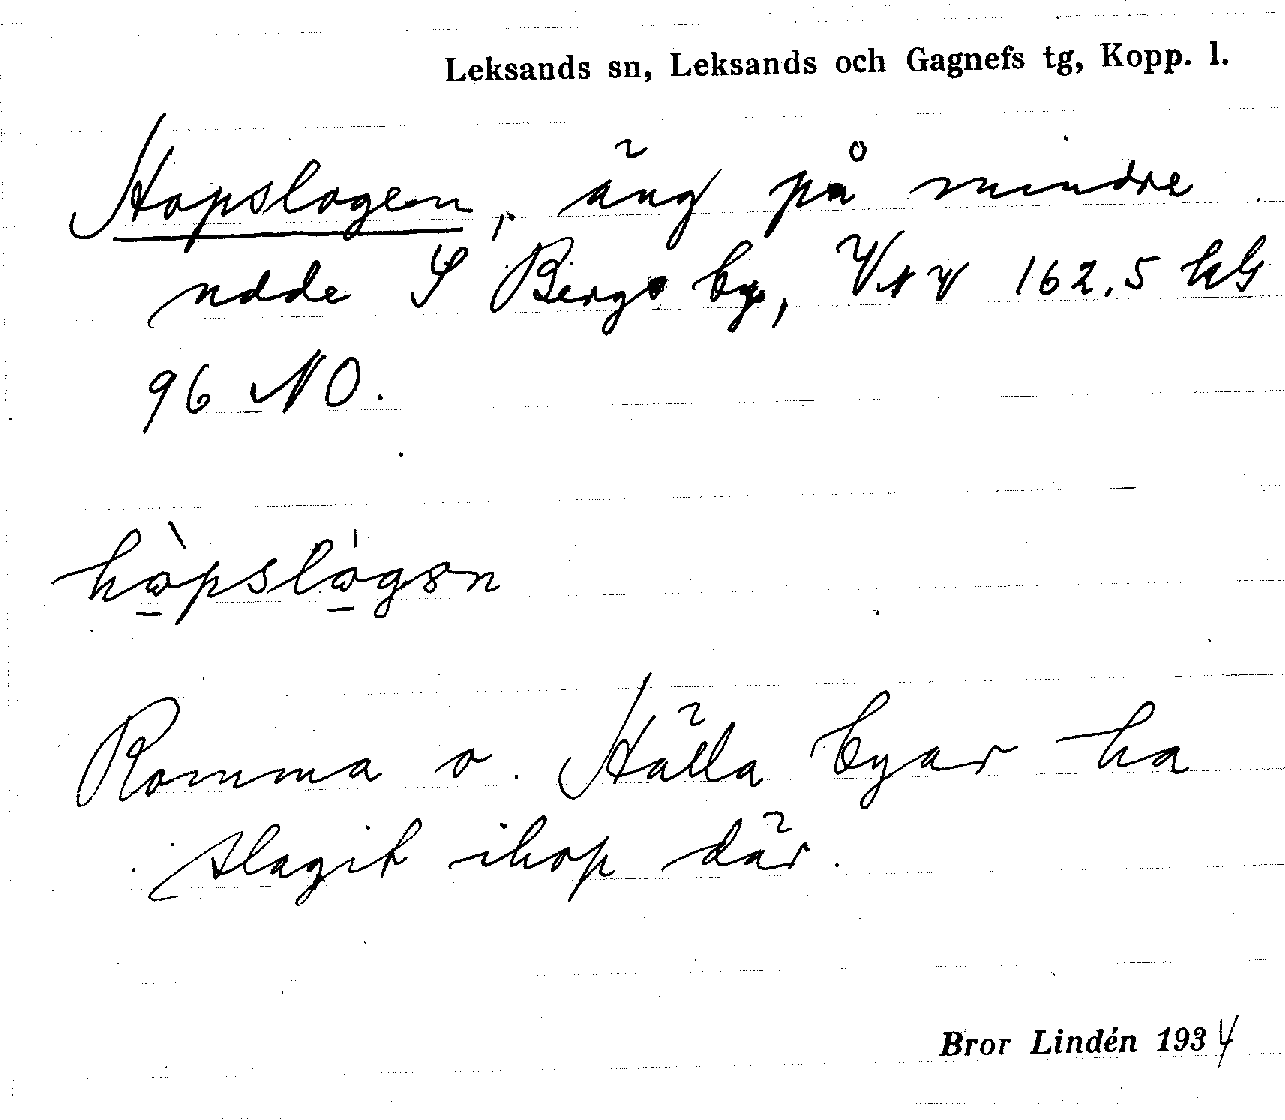 Leksands sn, Leksands och Gagnefs tg, Kopp. l.
Hopslogen, äng på mindre
udde S Bergs by, VNV 162,5 hG
96 NO.
hòpslógən
Romma o. Hälla byar ha
slagit ihop där.
Bror Lindén 1934